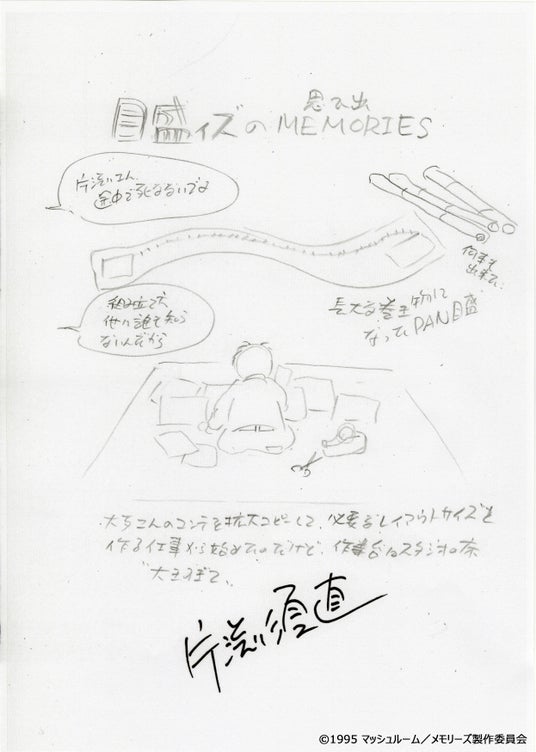 思い出
目盛ィズのMEMORIES
片渕さん、
途中で死なないでよ
何本も
出来て…
長大な巻き物に
なったPAN目盛
組み立て方、
他に誰も知ら
ないんだから
大友さんのコンテを拡大コピーして、必要なレイアウトサイズを
作る仕事から始めたのだけど、作業台はスタジオの床
大きすぎて、
片渕須直
©1995 マッシュルーム／メモリーズ製作委員会